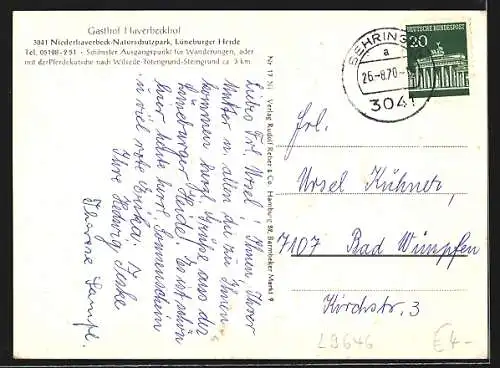 Gasthof Haverbeckhof
3041 Niederhaverbeck-Naturschutzpark, Lüneburger Heide
Tel. 05198-251 - Schönster Ausgangspunkt für Wanderungen, oder
mit der Pferdekutsche nach Wilsede-Totengrund-Steingrund ca. 3 km.
Liebes Frl. Ursel! Ihnen Ihrer
Mutter u. allen die zu Ihnen
kommen herzl. Grüsse aus der
Lüneburger Heide! Es ist schön
hier heute Sonnenschein
u viel rote Erika. I
Ihre Hedwig
Therese
Nr. 17 Verlag Rudolf Reher & Co. Hamburg 92, Barmbeker Markt 9
BEHRING
a
26.-8.70-
3041
20
DEUTSCHE BUNDESPOST
Frl.
Ursel Kühner,
7107 Bad Wimpfen
Kirchstr. 3
L9646
€4-